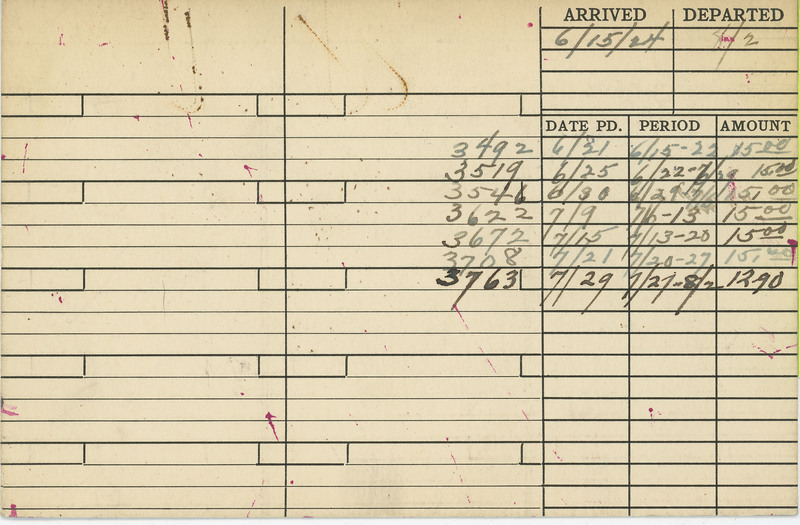 ARRIVED DEPARTED
6/15/24 8/2
DATE PD. PERIOD AMOUNT
3492 6/21 6/15-22 15.00
3519 6/25 6/22- 15.00
3546 6/30 6/29- 15.00
3622 7/9 7/6-13 15.00
3672 7/15 7/13-20 15.00
3708 7/21 7/20-27 15.00
3763 7/29 7/27-8/2 1290